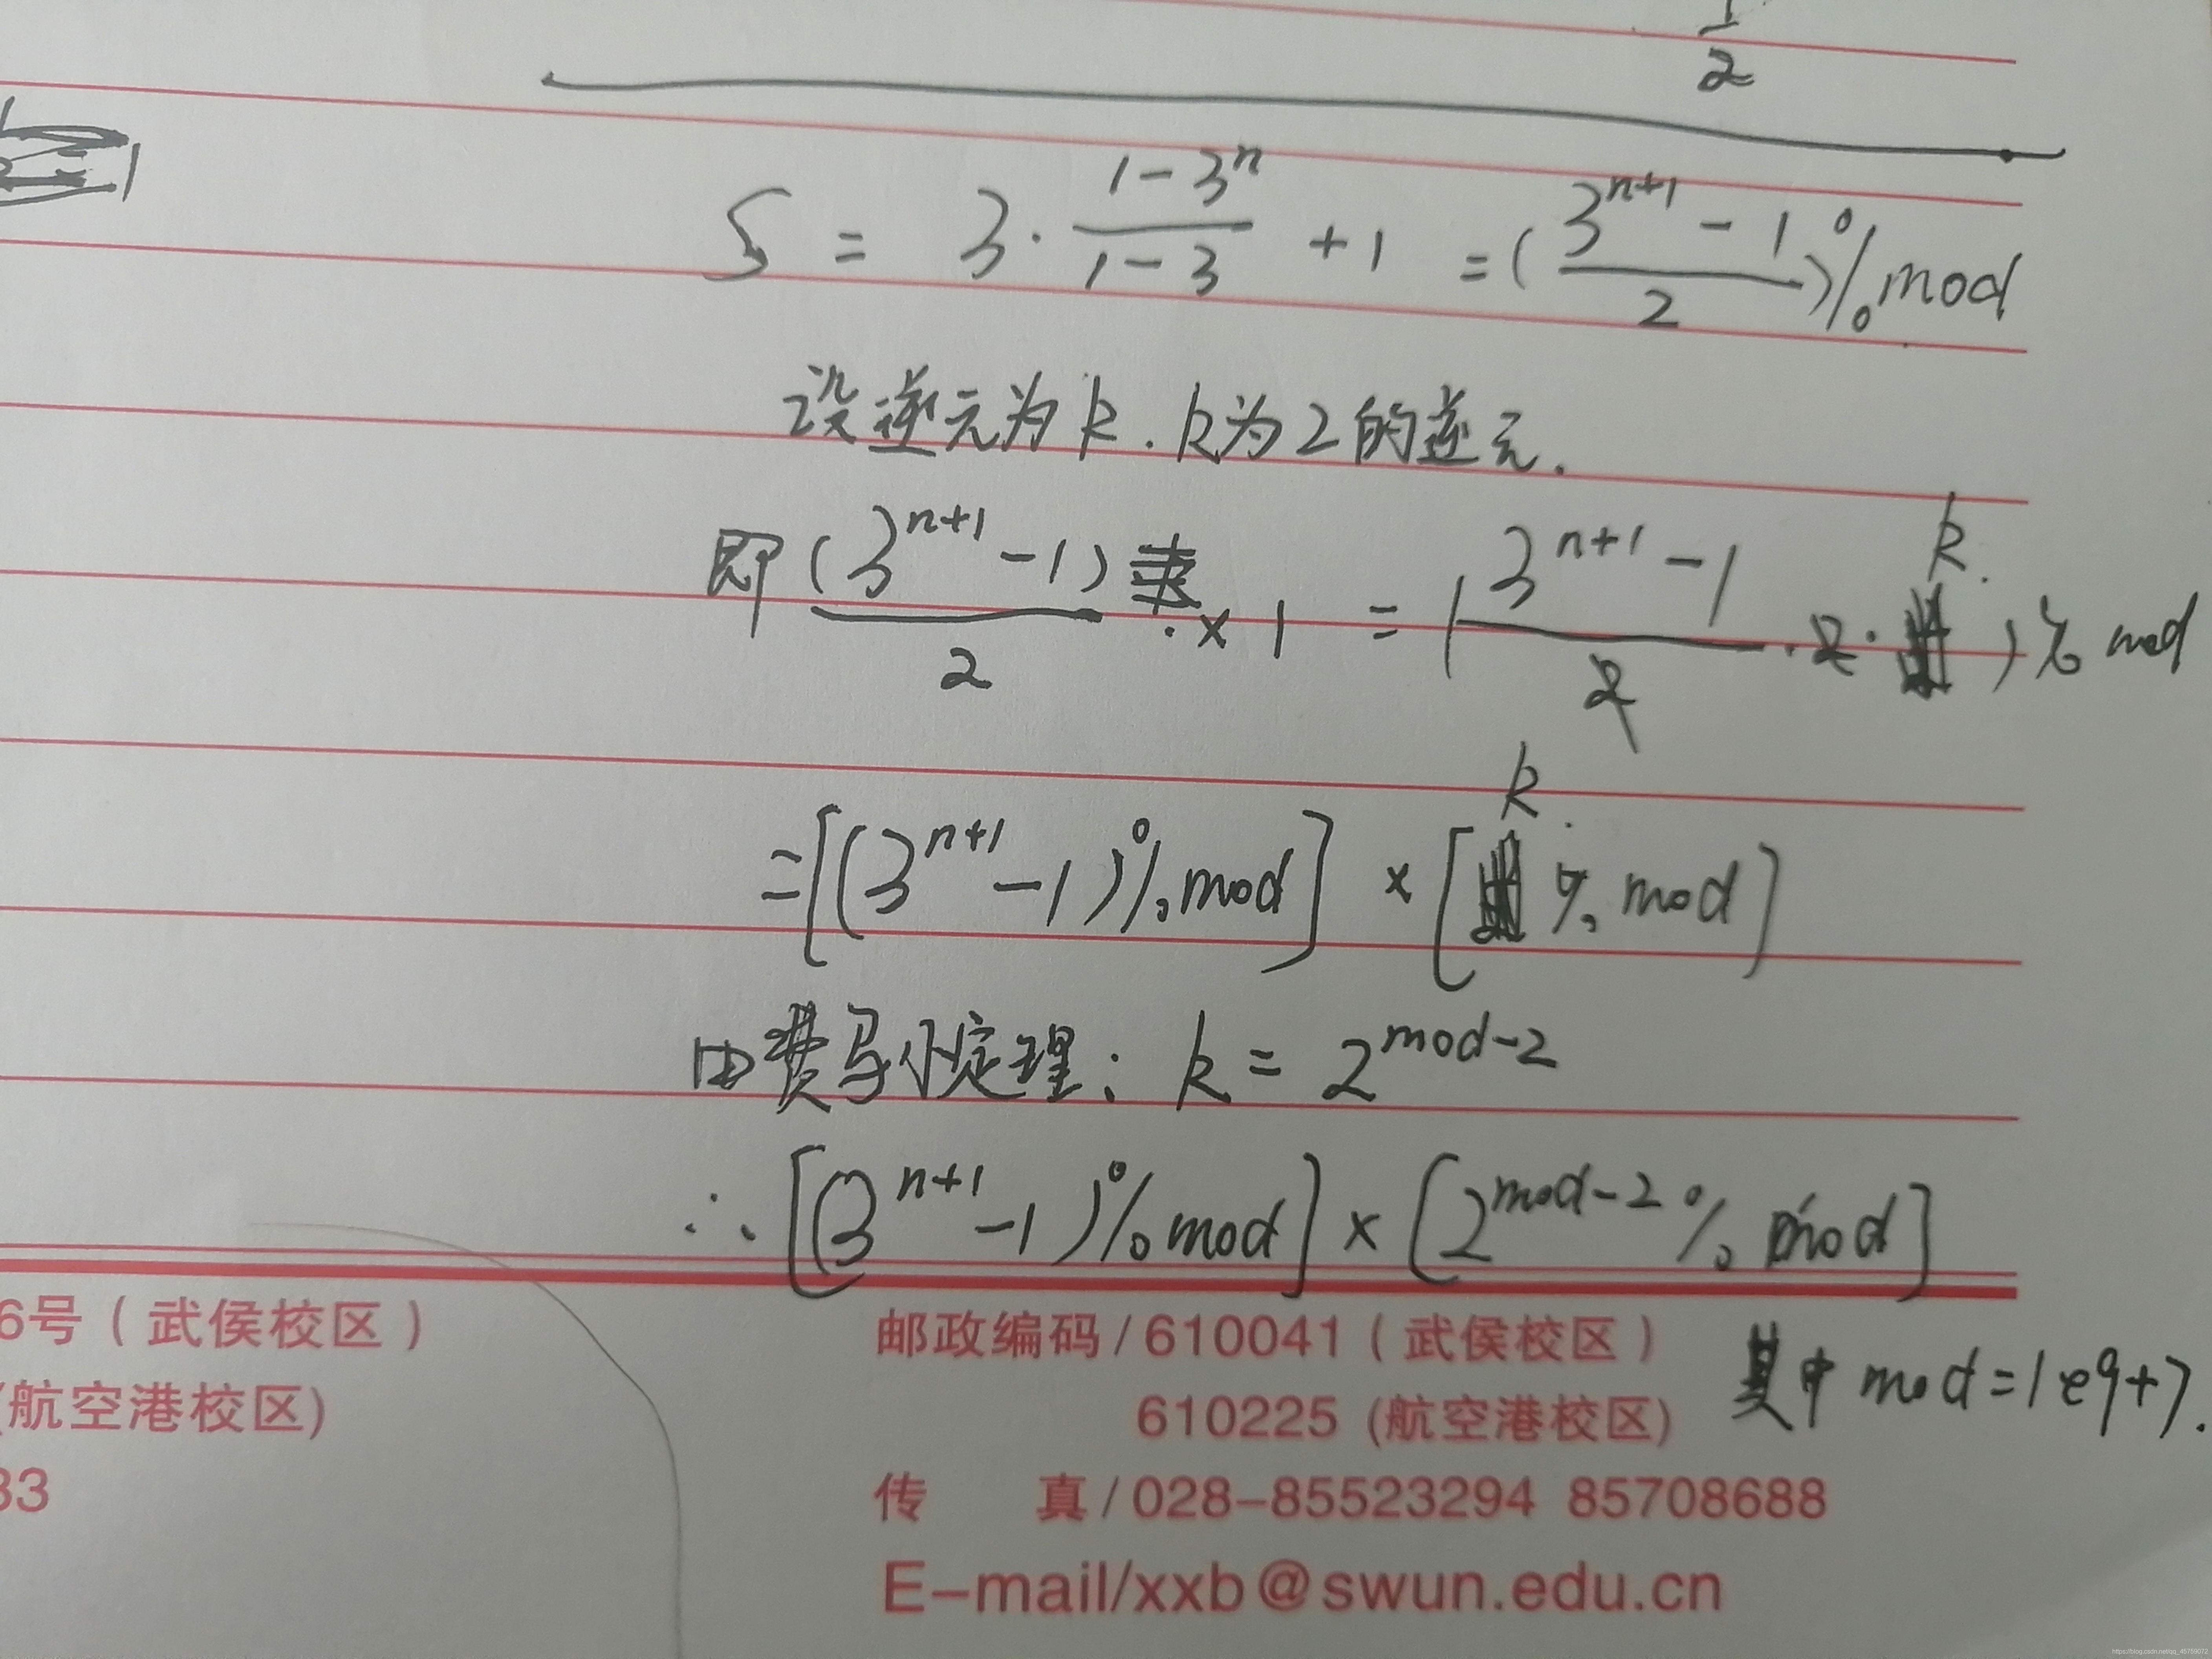 1/2
S = 3·(1-3^n)/(1-3) +1 = ((3^{n+1} -1)/2)%mod
设逆元为k.k为2的逆元.
即 (3^{n+1} -1)/2 ×1 = ((3^{n+1} -1)/2 ·2·k)% mod
=[(3^{n+1} -1)%mod] × [k % mod]
由费马小定理: k = 2^{mod-2}
∴ [(3^{n+1} -1)%mod] × [2^{mod-2} % mod]
其中 mod=1e9+7.
6号(武侯校区)
(航空港校区)
33
邮政编码/610041(武侯校区)
610225 (航空港校区)
传 真/028-85523294 85708688
E-mail/xxb@swun.edu.cn